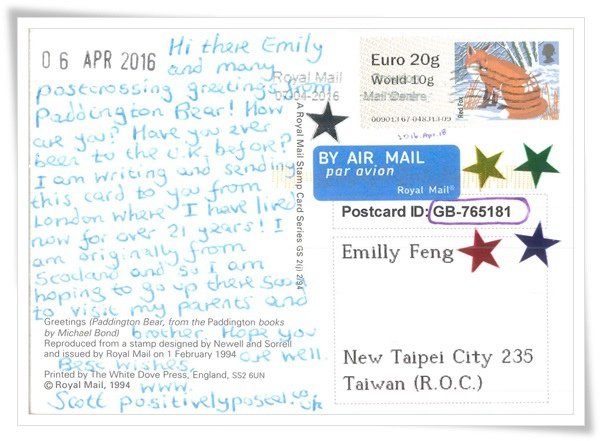 06 APR 2016
Hi there Emily
and many
postcrossing greetings from
Paddington Bear! How
are you? Have you ever
been to the U.K. before?
I am writing and sending
this card to you from
London where I have lived
now for over 21 years! I
am originally from
Scotland and so I am
hoping to go up there soon
to visit my parents and
brother. Hope you
are well.
Best wishes,
Scott
www.
positivelyposted.co.uk
Greetings (Paddington Bear, from the Paddington books
by Michael Bond)
Reproduced from a stamp designed by Newell and Sorrell
and issued by Royal Mail on 1 February 1994
Printed by The White Dove Press, England, SS2 6UN
© Royal Mail, 1994
A Royal Mail Stamp Card Series GS 2(j) 2/94
Royal Mail
07-04-2016
Mail Centre
Euro 20g
World 10g
Red Fox
2016.Apr.18
BY AIR MAIL
par avion
Royal Mail®
Postcard ID: GB-765181
Emilly Feng
New Taipei City 235
Taiwan (R.O.C.)